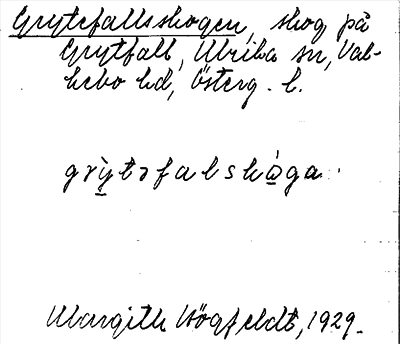 Grytefallsskogen, skog på
Grytfall, Ulrika sn, Val-
kebo hd, Österg. l.
grỳtəfalskò̱ga.
Margith Högfeldt, 1929.